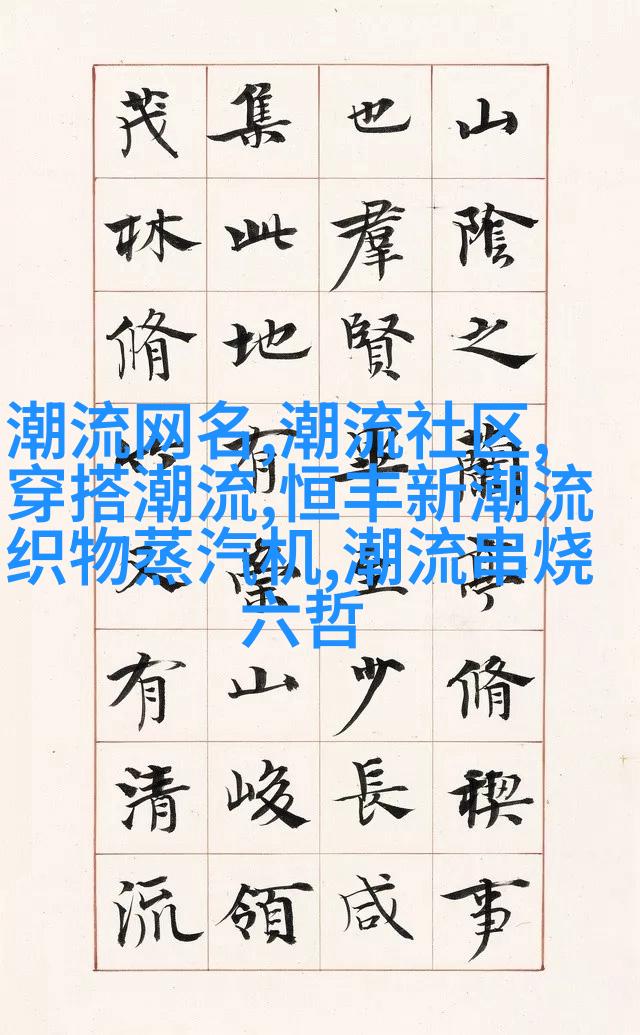 山陰之蘭亭脩稧事
也羣賢畢至少長咸
集此地有崇山峻領
茂林脩竹又有清流
潮流网名,潮流社区,
穿搭潮流,恒丰新潮流
织物蒸汽机,潮流串烧
六哲